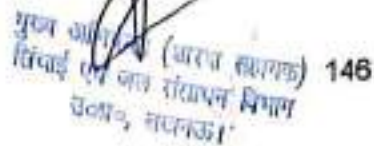 मुख्य (शारदा सहायक) 146
सिंचाई एवं जल संसाधन विभाग
उ०प्र०, लखनऊ।